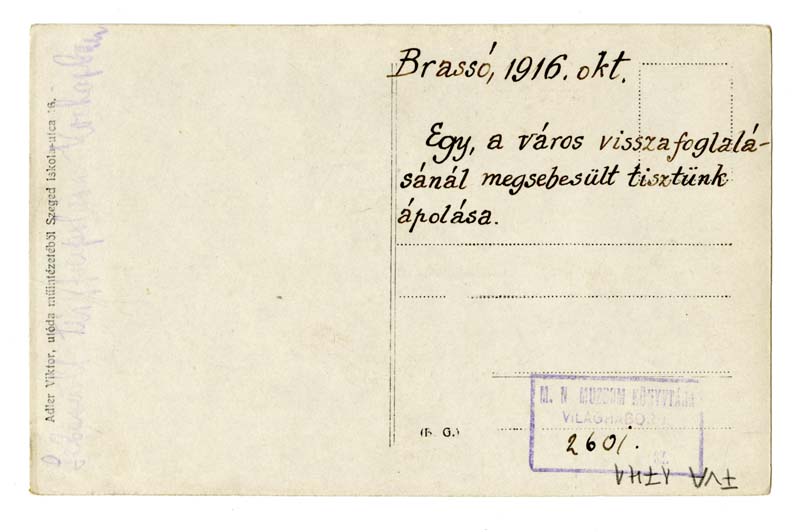 Brassó, 1916. okt.
Egy, a város visszafoglalá-
sánál megsebesült tisztünk
ápolása.
Adler Viktor, utóda műintézetéből Szeged Iskola-utca 16.
(B. G.)
M. N. MUZEUM KÖNYVTÁRA
VILÁGHÁBORÚ
2601.
FVA 1741